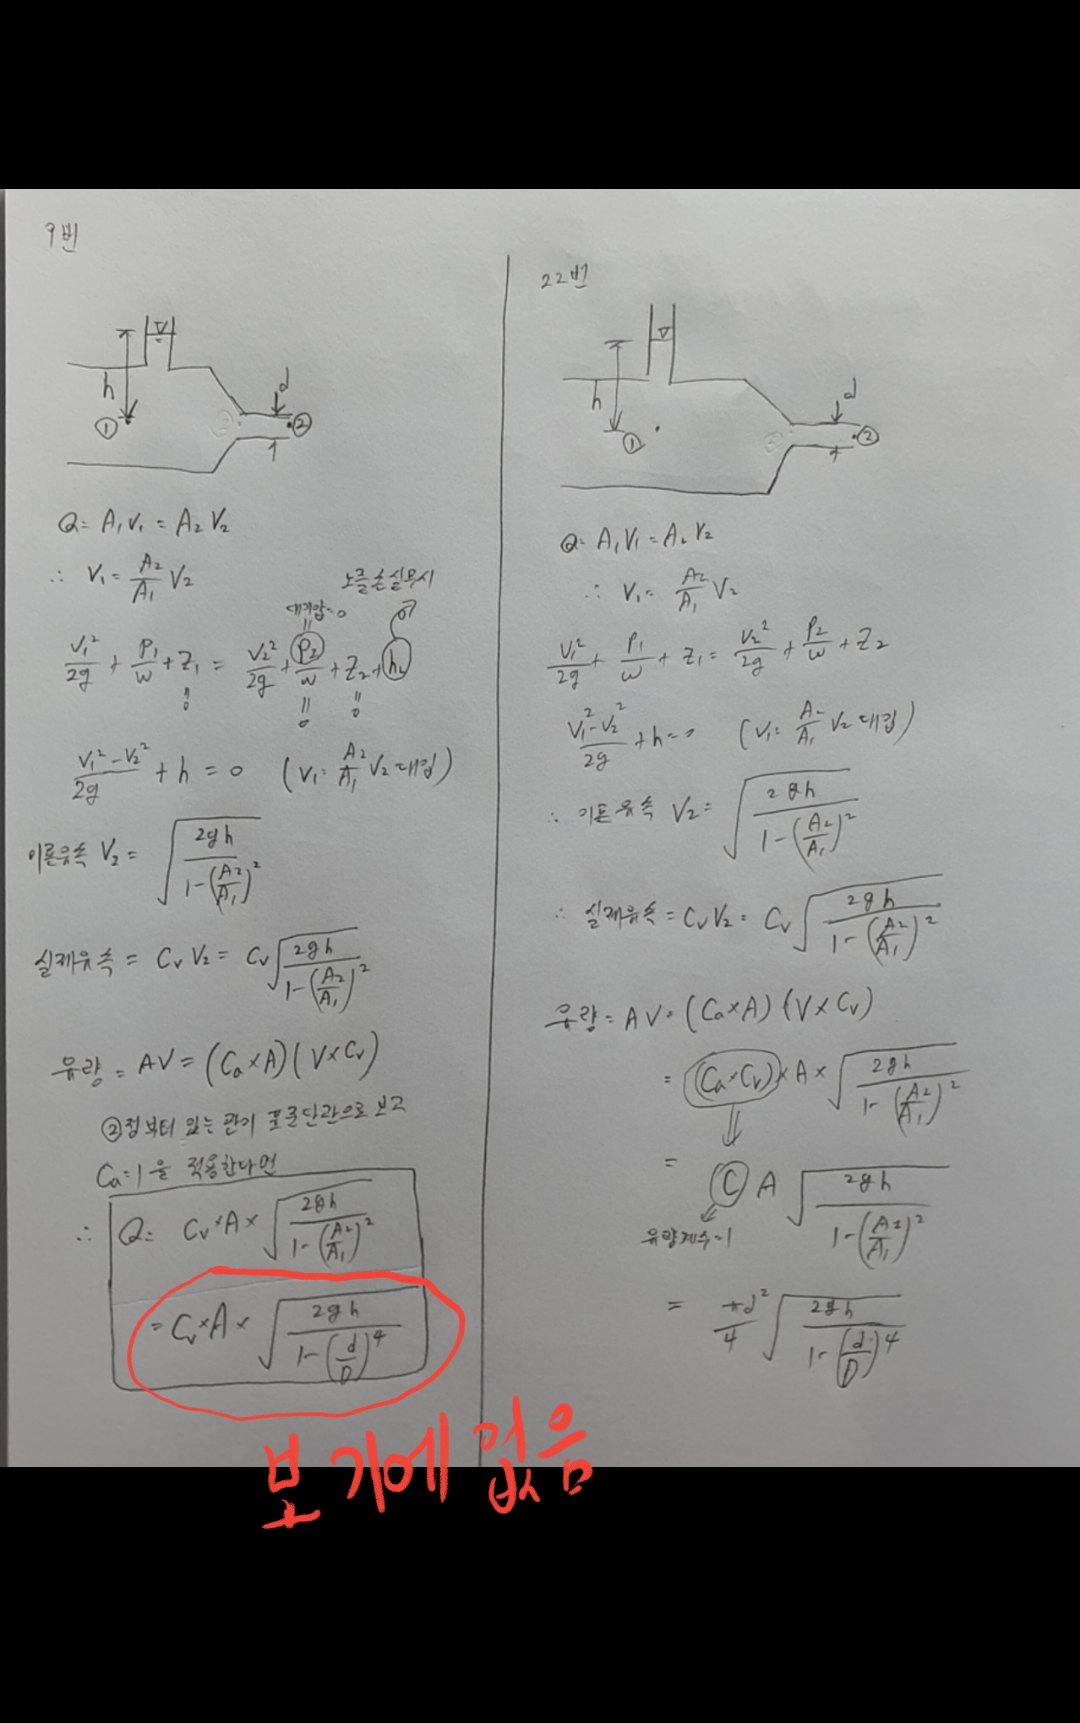 9번
h
d
①
②
Q = A₁V₁ = A₂V₂
∴ V₁ = A₂/A₁ V₂
노즐 손실무시
대기압=0
V₁²/2g + P₁/w + Z₁ = V₂²/2g + P₂/w + Z₂ + hL
0 0 0
V₁²-V₂²/2g + h = 0 (V₁ = A₂/A₁ V₂ 대입)
이론유속 V₂ = √(2gh/(1-(A₂/A₁)²))
실제유속 = Cv V₂ = Cv√(2gh/(1-(A₂/A₁)²))
유량 = AV = (Ca×A)(V×Cv)
②점부터 있는 관이 표준단관으로 보고
Ca=1을 적용한다면
∴ Q = Cv×A×√(2gh/(1-(A₂/A₁)²))
= Cv×A×√(2gh/(1-(d/D)⁴))
보기에 없음
22번
h
d
①
②
Q = A₁V₁ = A₂V₂
∴ V₁ = A₂/A₁ V₂
V₁²/2g + P₁/w + Z₁ = V₂²/2g + P₂/w + Z₂
V₁²-V₂²/2g + h = 0 (V₁ = A₂/A₁ V₂ 대입)
∴ 이론유속 V₂ = √(2gh/(1-(A₂/A₁)²))
∴ 실제유속 = Cv V₂ = Cv√(2gh/(1-(A₂/A₁)²))
유량 = AV = (Ca×A)(V×Cv)
= (Ca×Cv)×A×√(2gh/(1-(A₂/A₁)²))
= C A √(2gh/(1-(A₂/A₁)²))
유량계수=1
= πd²/4 √(2gh/(1-(d/D)⁴))